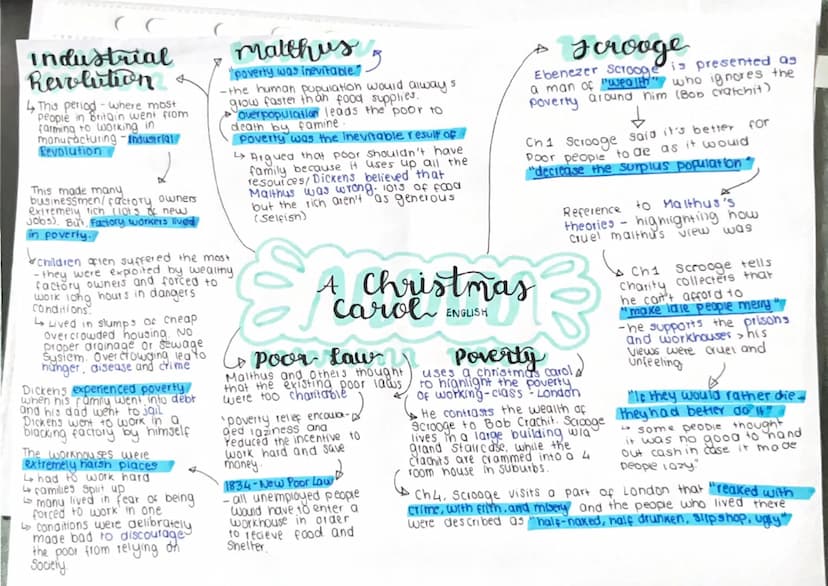 Industrial
Revolution
↳ This period - where most
People in Britain went from
farming to working in
manufacturing - Industrial
Revolution
This made many
businessmen/factory owners
Extremely rich (lots of new
jobs). But Factory workers lived
in poverty.
↳ Children often suffered the most
- they were exploited by wealthy
factory owners and forced to
work long hours in dangers
conditions.
↳ Lived in slumps of cheap
overcrowded housing. No
proper drainage or sewage
system. Overcrowding lead to
hunger, disease and crime
Dickens experienced poverty
when his family went into debt
and his dad went to jail
Dickens went to work in a
blacking factory by himself
The workhouses were
extremely harsh places
↳ had to work hard
↳ Families split up
↳ many lived in fear of being
forced to work in one
↳ conditions were delibrately
made bad to discourage
the poor from relying on
society.
Malthus
"poverty was inevitable"
- the human population would always
grow faster than food supplies.
↳ Overpopulation leads the poor to
death by famine.
poverty was the inevitable result of
↳ Argued that poor shouldn't have
family because it uses up all the
resources/Dickens believed that
Malthus was wrong: lots of food
but the rich aren't as generous
(Selfish)
A Christmas
Carol ENGLISH
Poor Law
Malthus and others thought
that the existing poor laws
were too charitable
- poverty relief encoura-
ged laziness and
reduced the incentive to
work hard and save
money.
1834 - New Poor Law
- all unemployed people
would have to enter a
workhouse in order
to recieve food and
shelter.
Poverty
uses a christmas carol
to highlight the poverty
of working-class - London
↳ He contrasts the wealth of
Scrooge to Bob Crachit. Scrooge
lives in a large building w/a
grand staircase, while the
crachits are crammed into a 4
room house in suburbs.
↳ Ch4, Scrooge visits a part of London that "reaked with
crime, with filth, and misery" and the people who lived there
were described as "half-naked, half drunken, slipshop, ugly"
Scrooge
Ebenezer Scrooge is presented as
a man of "wealth" who ignores the
poverty around him (Bob Cratchit)
Ch1 Scrooge said it's better for
Poor people to die as it would
"decrease the surplus population"
Reference to Malthus's
theories - highlighting how
cruel malthus view was
↳ Ch1 Scrooge tells
charity collecters that
he can't afford to
"make idle people merry"
- he supports the prisons
and workhouses > his
views were cruel and
unfeeling
"If they would rather die -
they had better do it"
- some people thought
it was no good to hand
out cash in case it made
people lazy"